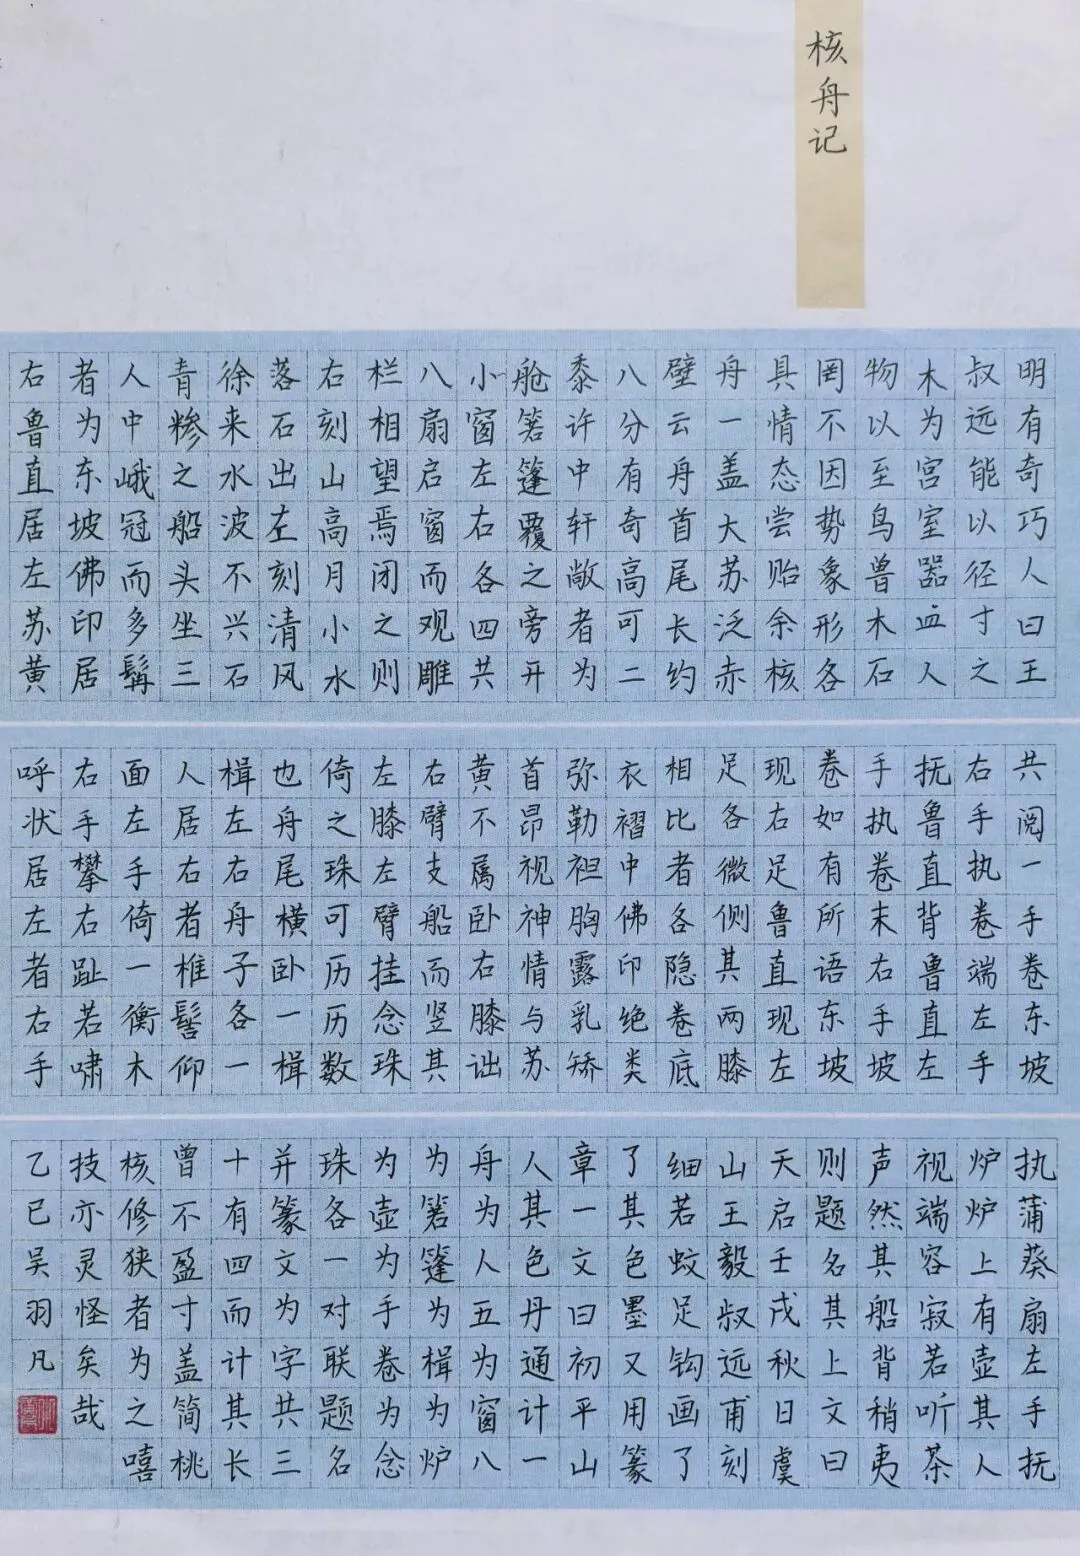 核舟记
明有奇巧人曰王
叔远能以径寸之
木为宫室器皿人
物以至鸟兽木石
罔不因势象形各
具情态尝贻余核
舟一盖大苏泛赤
壁云舟首尾长约
八分有奇高可二
黍许中轩敞者为
舱箬篷覆之旁开
小窗左右各四共
八扇启窗而观雕
栏相望焉闭之则
右刻山高月小水
落石出左刻清风
徐来水波不兴石
青糁之船头坐三
人中峨冠而多髯
者为东坡佛印居
右鲁直居左苏黄
共阅一手卷东坡
右手执卷端左手
抚鲁直背鲁直左
手执卷末右手坡
卷如有所语东坡
现右足鲁直现左
足各微侧其两膝
相比者各隐卷底
衣褶中佛印绝类
弥勒袒胸露乳矫
首昂视神情与苏
黄不属卧右膝诎
右臂支船而竖其
左膝左臂挂念珠
倚之珠可历历数
也舟尾横卧一楫
楫左右舟子各一
人居右者椎髻仰
面左手倚一衡木
右手攀右趾若啸
呼状居左者右手
执蒲葵扇左手抚
炉炉上有壶其人
视端容寂若听茶
声然其船背稍夷
则题名其上文曰
天启壬戌秋日虞
山王毅叔远甫刻
细若蚊足钩画了
了其色墨又用篆
章一文曰初平山
人其色丹通计一
舟为人五为窗八
为箬篷为楫为炉
为壶为手卷为念
珠各一对联题名
并篆文为字共三
十有四而计其长
曾不盈寸盖简桃
核修狭者为之嘻
技亦灵怪矣哉
乙巳吴羽凡